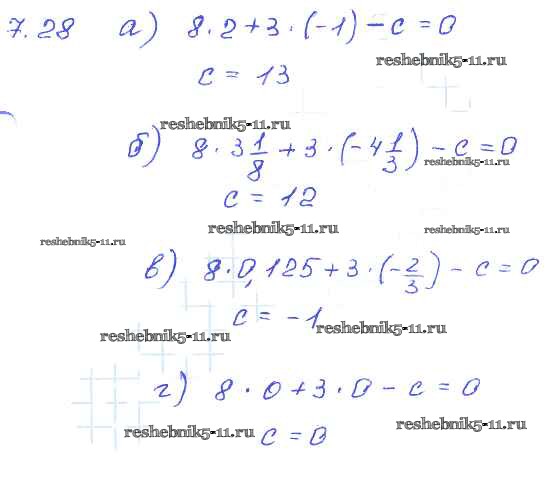 7.28 а) 8·2+3·(-1)-c=0
reshebnik5-11.ru
c = 13
reshebnik5-11.ru
б) 8·3 1/8 + 3·(-4 1/3) - c = 0
reshebnik5-11.ru
c = 12
reshebnik5-11.ru reshebnik5-11.ru
reshebnik5-11.ru
в) 8·0,125+3·(-2/3) - c = 0
c = -1
reshebnik5-11.ru
reshebnik5-11.ru
г) 8·0+3·0-c=0
reshebnik5-11.ru
reshebnik5-11.ru c = 0